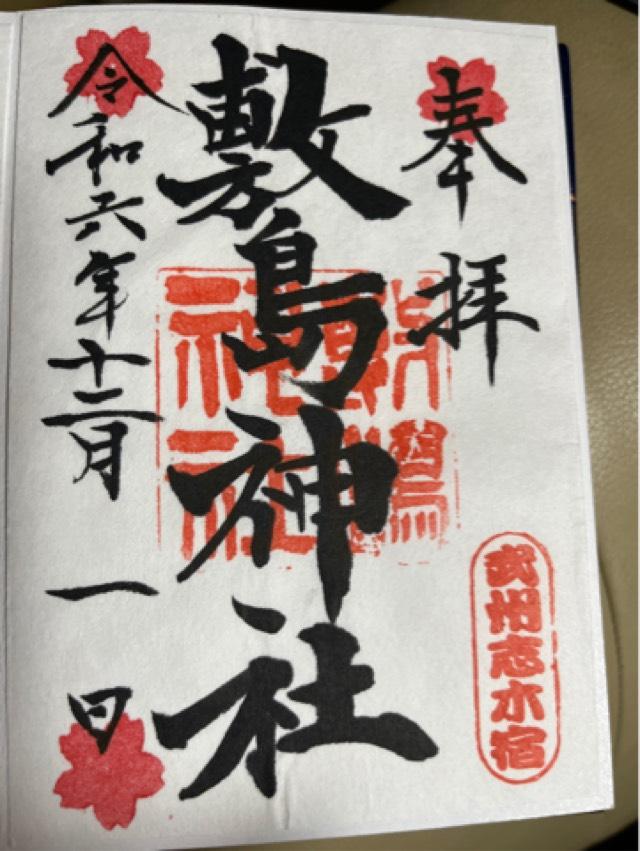 奉拝
武州志木宿
敷島神社
令和六年十二月一日